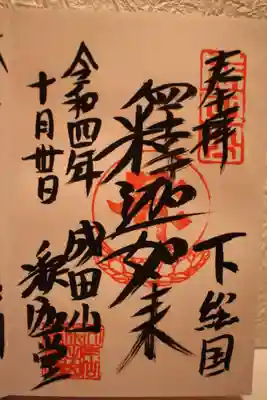 奉拝
下総国
釋迦如来
令和四年
十月卅日
成田山
釈迦堂